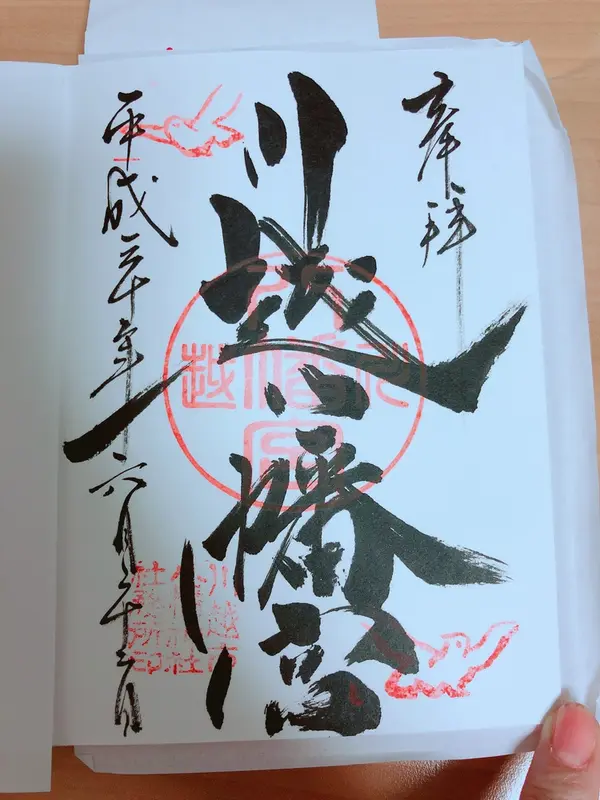 奉拝
川越八幡宮
川越
八幡宮
平成三十年六月
川越市
八幡神社
社務所印